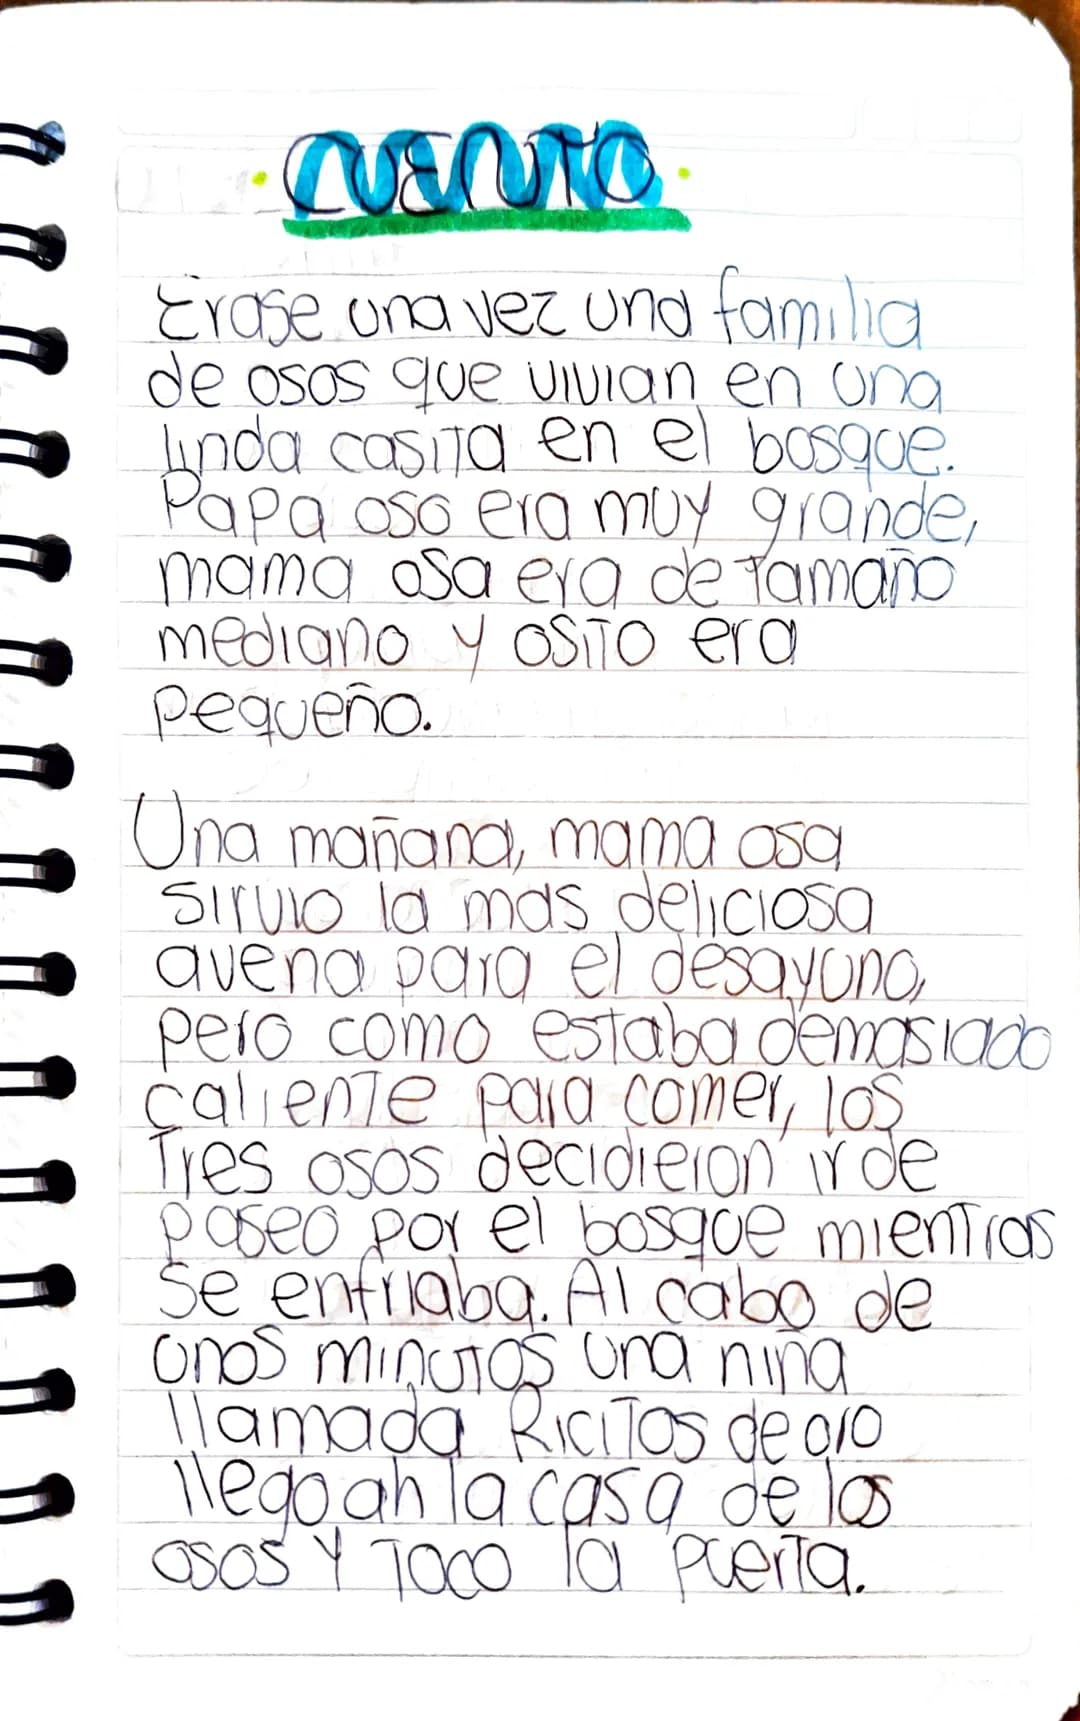 CUENTO
Erase una vez una familia
de osos que vivian en una
linda casita en el bosque.
Papa oso era muy grande,
mama osa era de tamaño
mediano y osito era
pequeño.
Una mañana, mama osa
sirvio la mas deliciosa
avena para el desayuno,
pero como estaba demasiado
caliente para comer, los
Tres osos decidieron ir de
paseo por el bosque mientras
se enfriaba. Al cabo de
unos minutos una niña
llamada Ricitos de oro
llego ah la casa de los
osos y toco la puerta.